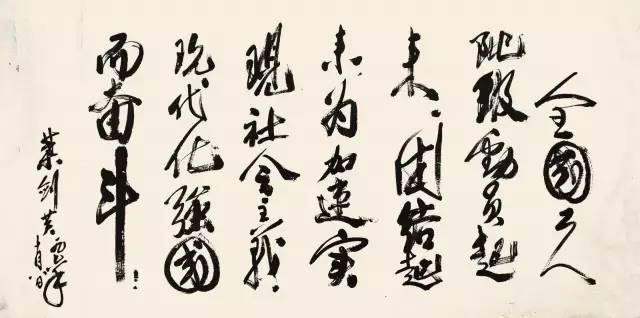 全國工人
阶级動员起
来，团结起
来，为加速实
現社会主義
现代化强國
而奋斗！
葉剑英